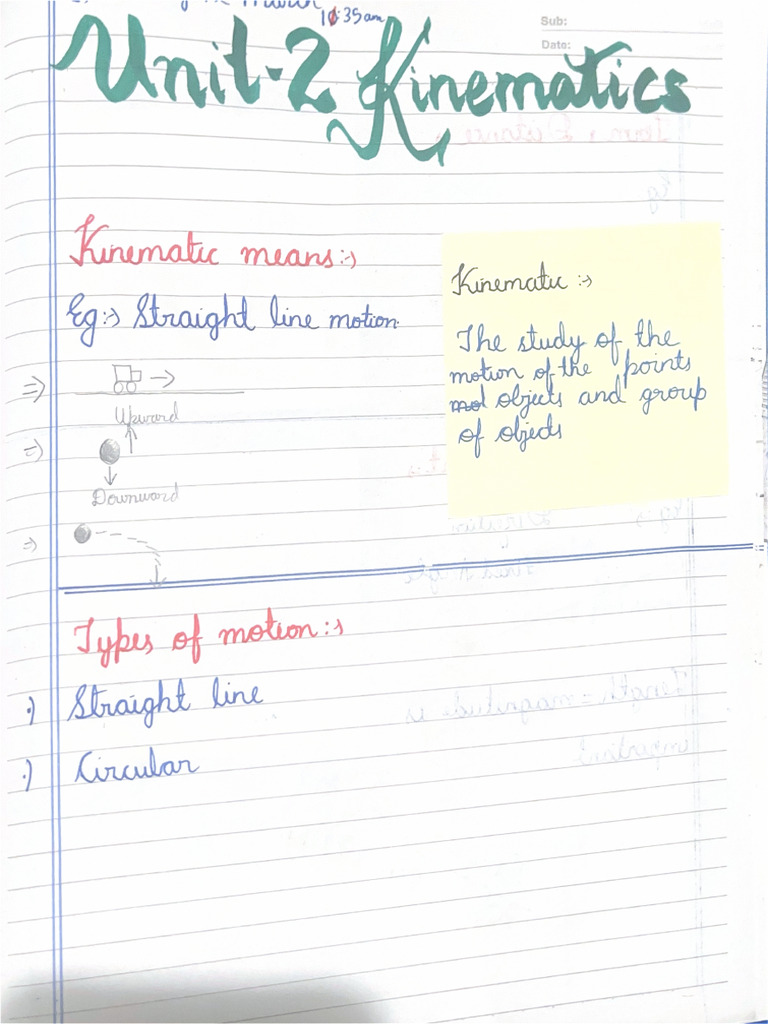 10:35am
Sub:
Date:
Unit-2 Kinematics
Kinematic means:→
Eg:→ Straight line motion.
Kinematic :→
The study of the
motion of the points
mol objects and group
of objects
⇒) →
Upward
⇒)
Downward
⇒)
Types of motion:→
·) Straight line
·) Circular